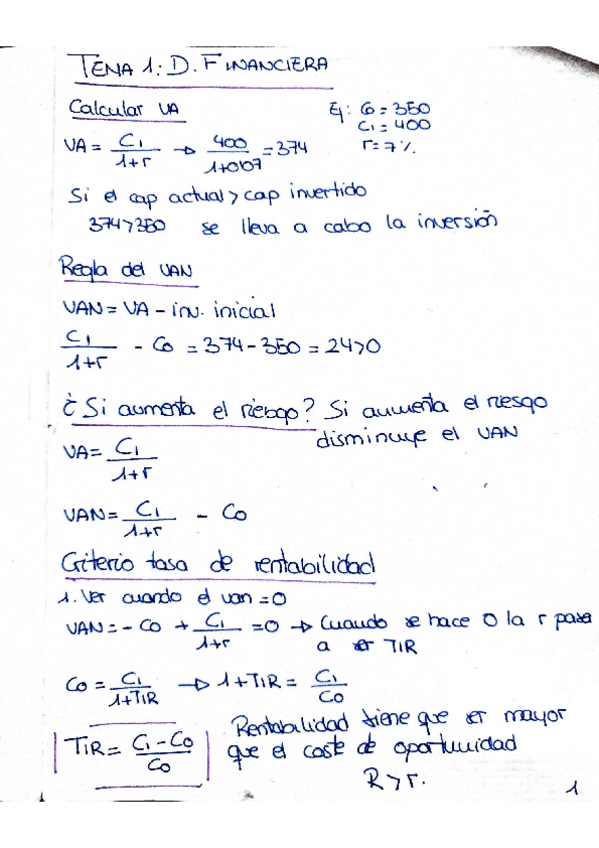 TEMA 1: D. FINANCIERA
Calcular VA
Ej: C0 = 350
C1 = 400
r = 7%
VA = C1/1+r → 400/1+0'07 = 374
Si el cap actual > cap invertido
374 > 350 se lleva a cabo la inversión
Regla del VAN
VAN = VA - inv. inicial
C1/1+r - C0 = 374 - 350 = 24 > 0
¿Si aumenta el riesgo? Si aumenta el riesgo
disminuye el VAN
VA = C1/1+r
VAN = C1/1+r - C0
Criterio tasa de rentabilidad
1. Ver cuando el van = 0
VAN = - C0 + C1/1+r = 0 → Cuando se hace 0 la r pasa
a ser TIR
C0 = C1/1+TIR → 1+TIR = C1/C0
TIR = C1 - C0/C0
Rentabilidad tiene que ser mayor
que el coste de oportunidad
R > r.
1